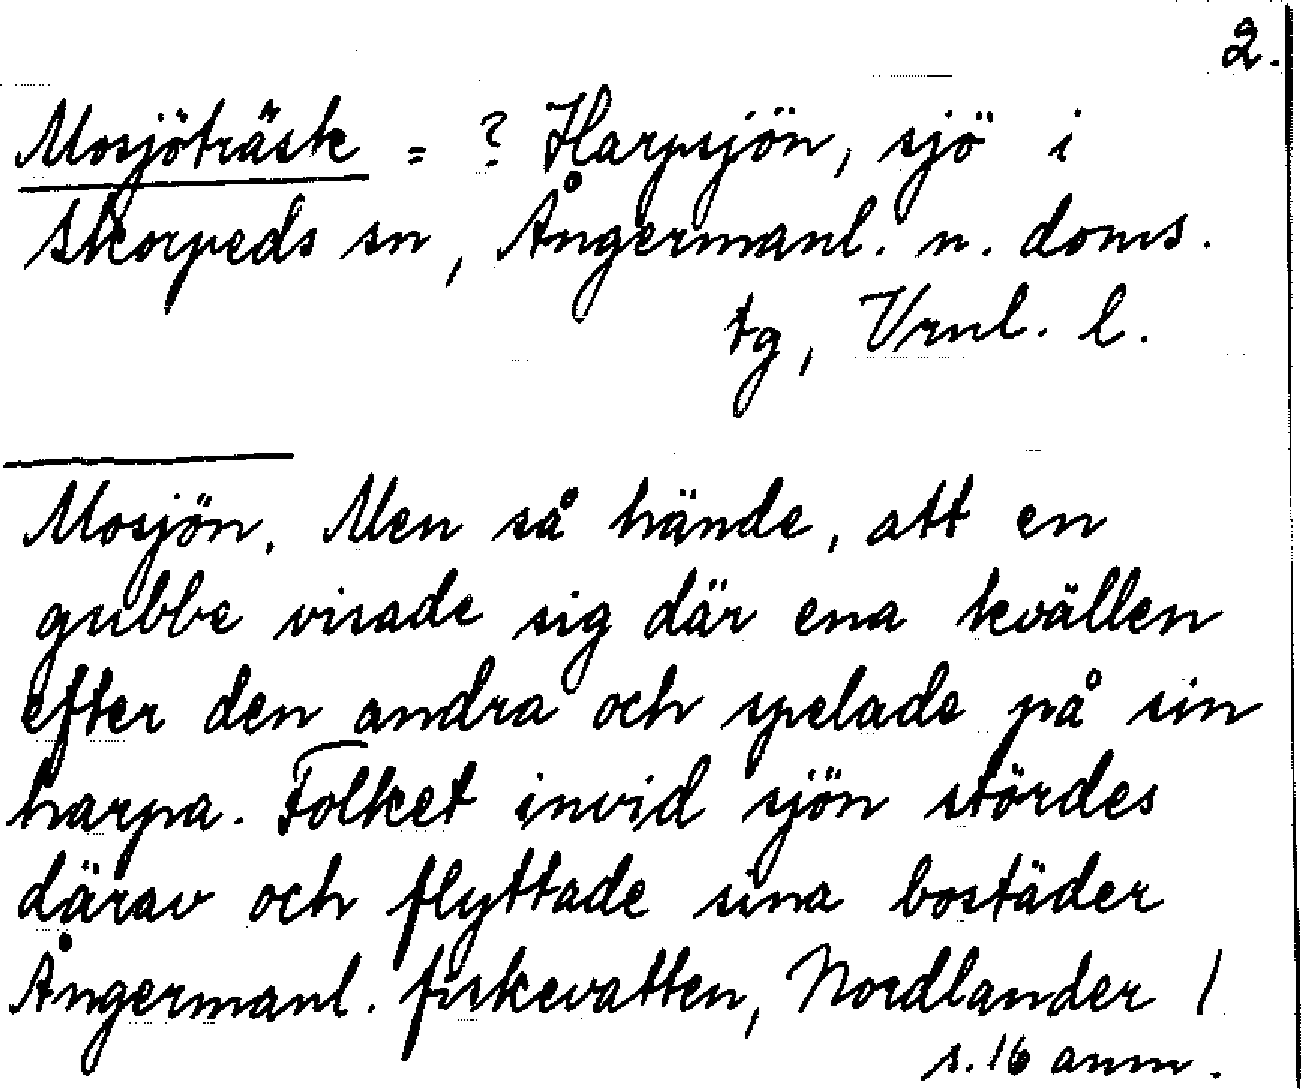 2.
Mosjöträsk = ? Harpsjön, sjö i
Skorpeds sn, Ångermanl. n. doms.
tg, Vrnl. l.
Mosjön. Men så hände, att en
gubbe visade sig där ena kvällen
efter den andra och spelade på sin
harpa. Folket invid sjön stördes
därav och flyttade sina bostäder
Ångermanl. fiskevatten, Nordlander /
s. 16 anm.